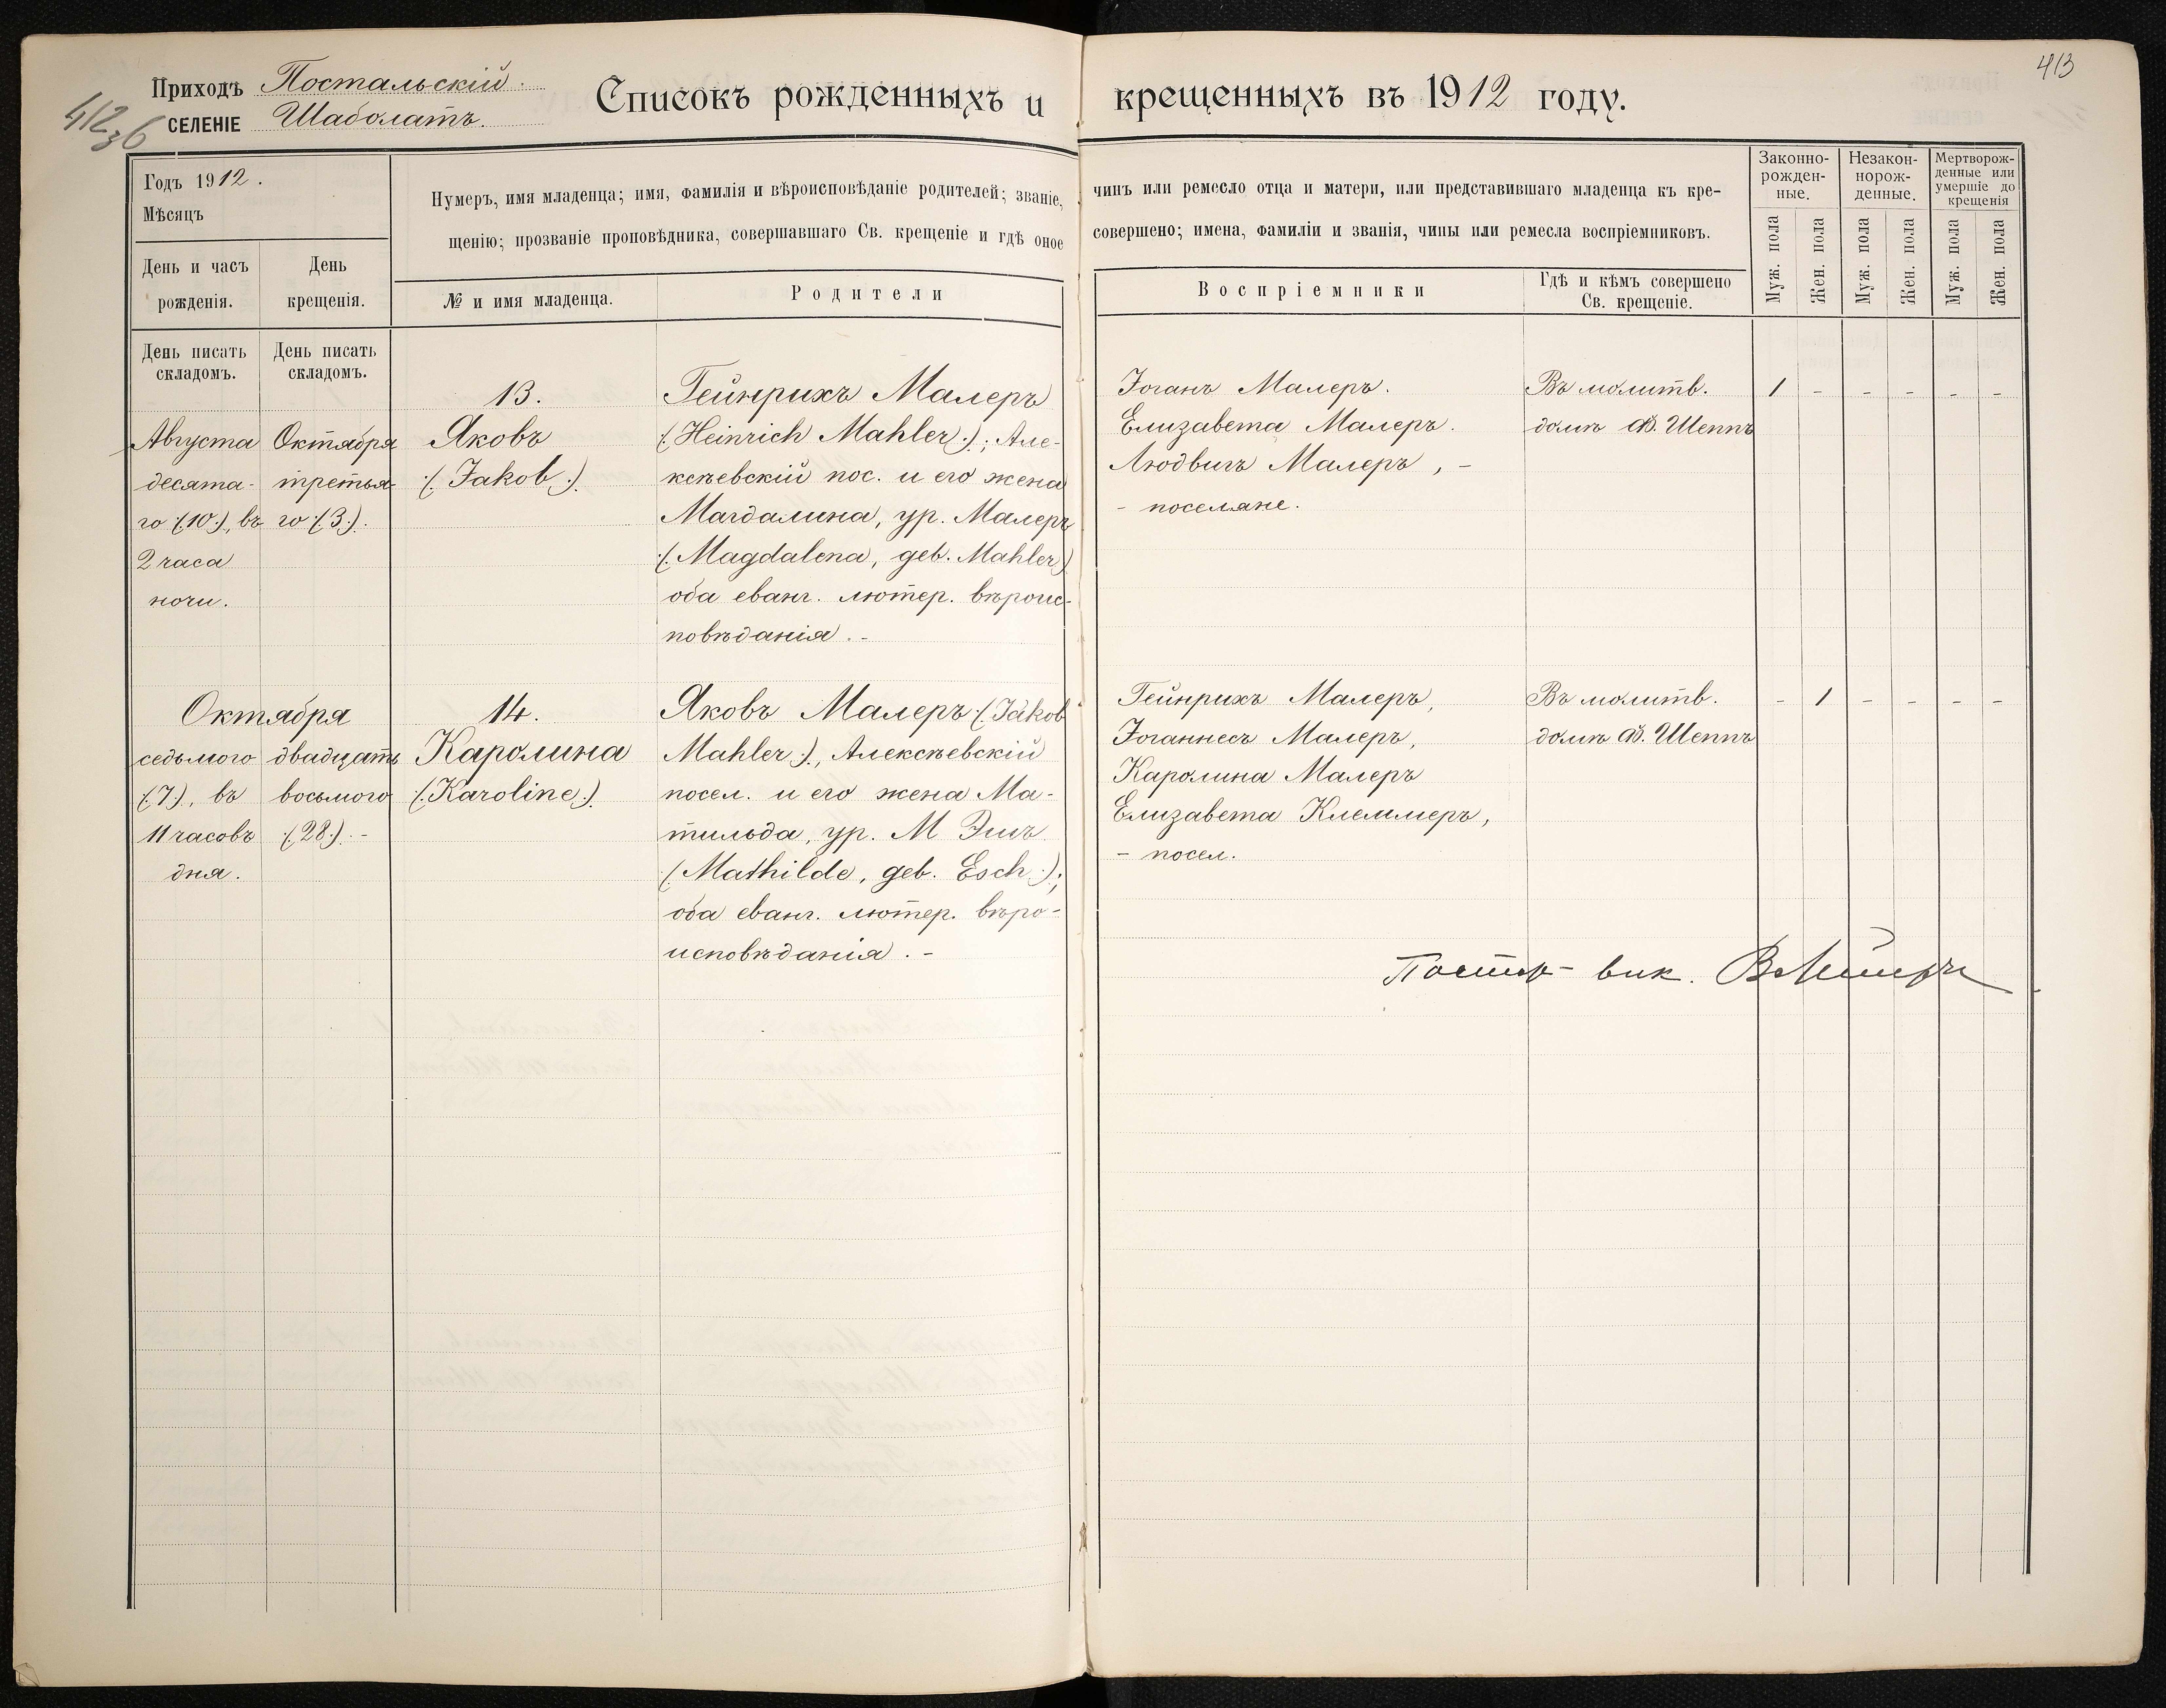 413
412 об
Приходъ Постальскій.
СЕЛЕНІЕ Шаболатъ.
Списокъ рожденныхъ и крещенныхъ въ 1912 году.
Годъ 1912.
Мѣсяцъ
День и часъ рожденія.
День крещенія.
Нумеръ, имя младенца; имя, фамилія и вѣроисповѣданіе родителей; званіе, чинъ или ремесло отца и матери, или представившаго младенца къ кре-
щенію; прозваніе проповѣдника, совершавшаго Св. крещеніе и гдѣ оное совершено; имена, фамиліи и званія, чины или ремесла воспріемниковъ.
№ и имя младенца.
Родители
Воспріемники
Гдѣ и кѣмъ совершено
Св. крещеніе.
Законно-
рожден-
ные.
Незакон-
норож-
денные.
Мертворож-
денные или
умершіе до
крещенія
Муж. пола
Жен. пола
Муж. пола
Жен. пола
Муж. пола
Жен. пола
День писать
складомъ.
День писать
складомъ.
Августа
десята-
го /:10:/, въ
2 часа
ночи.
Октября
третья-
го /:3:/.
13.
Яковъ
/: Jakob :/.
Гейнрихъ Малеръ
/: Heinrich Mahler :/; Але-
ксѣевскій пос. и его жена
Магдалина, ур. Малеръ
/: Magdalena, geb. Mahler/
оба еванг. лютер. вѣроис-
повѣданія. -
Іоганъ Малеръ.
Елизавета Малеръ.
Людвигъ Малеръ, -
- поселяне.
Въ молитв.
домѣ Ф. Шеппъ
1 - - - - -
Октября
седьмого
/:7:/, въ
11 часовъ
дня.
двадцать
восьмого
/:28:/. -
14.
Каролина
/: Karoline :/.
Яковъ Малеръ /: Jakob
Mahler :/, Алексѣевскій
посел. и его жена Ма-
тильда, ур. М Эшъ
/: Mathilde, geb. Esch :/;
оба еванг. лютер. вѣро-
исповѣданія. -
Гейнрихъ Малеръ,
Іоганнесъ Малеръ,
Каролина Малеръ
Елизавета Клеммеръ,
- посел.
Въ молитв.
домѣ Ф. Шеппъ
- 1 - - - -
Пастор-вик.